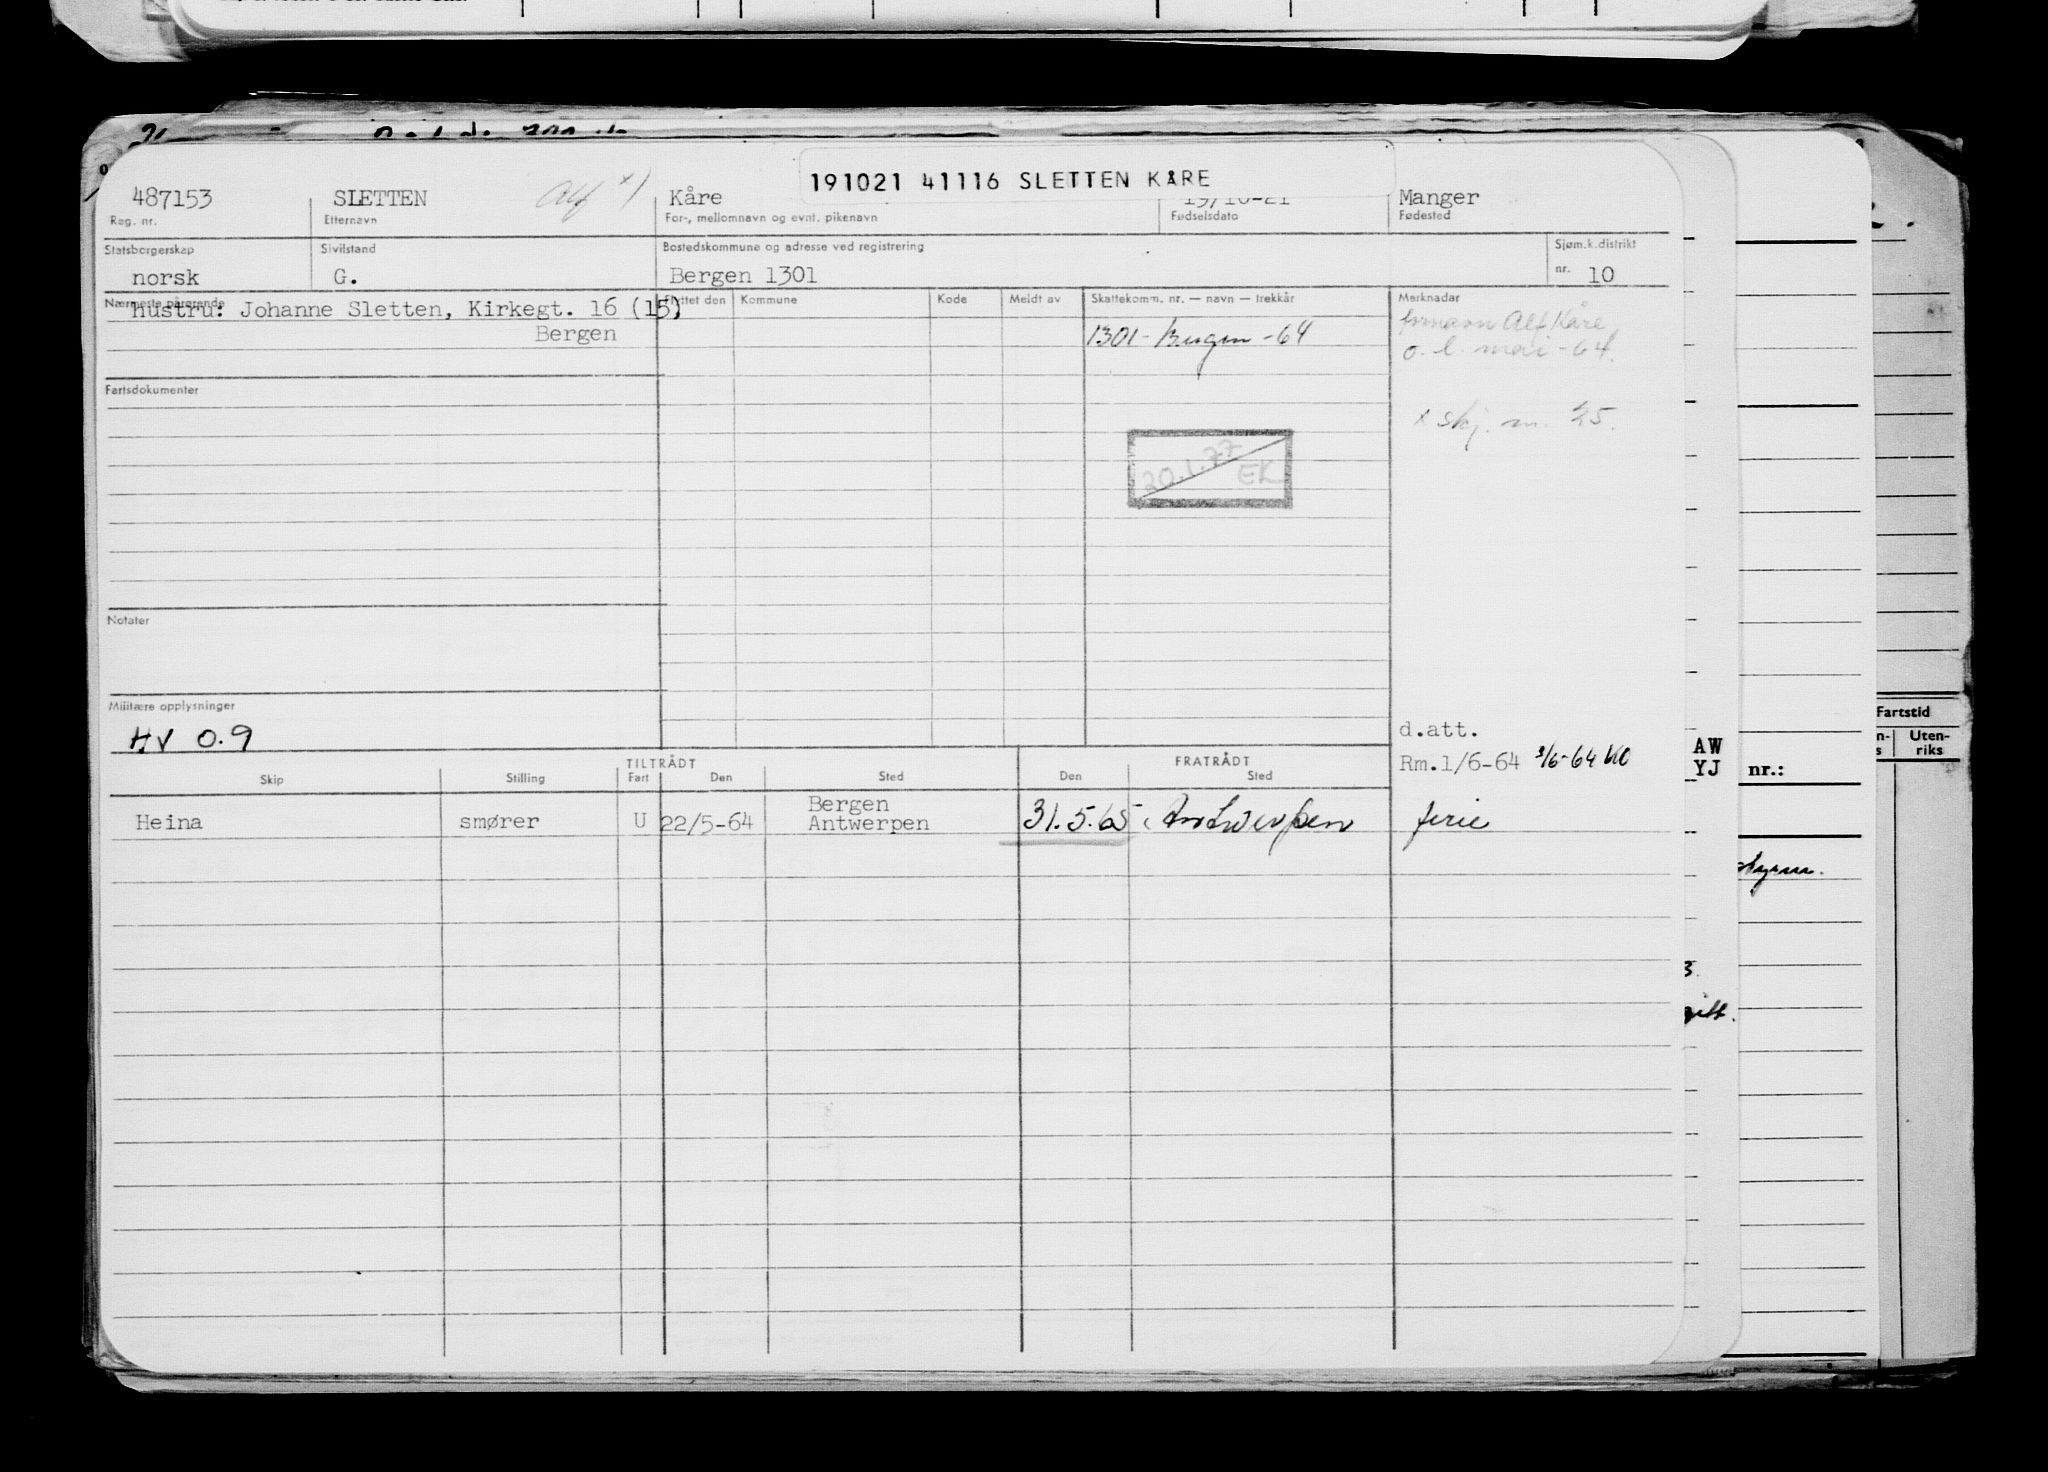 191021 41116 SLETTEN KÅRE
487153 SLETTEN Alf x) Kåre 19/10-21 Manger
Reg. nr. Etternavn For-, mellomnavn og evnt. pikenavn Fødselsdato Fødested
Statsborgerskap Sivilstand Bostedskommune og adresse ved registrering Sjøm.k.distrikt
norsk G. Bergen 1301 nr. 10
Nærmeste pårørende Flyttet den Kommune Kode Meldt av Skattekomm. nr. — navn — trekkår Merknader
Hustru: Johanne Sletten, Kirkegt. 16 (15)
Bergen
1301 - Bergen - 64
fornavn Alf Kåre
o. l. mai - 64.
Fartsdokumenter
x skj. m. 25.
20.1.77
EK
Notater
Militære opplysninger
HV 0.9
d.att.
Rm.1/6-64 3/6-64 KO
TILTRÅDT FRATRÅDT
Skip Stilling Fart Den Sted Den Sted
Heina smører U 22/5-64 Bergen
Antwerpen 31.5.65 Antwerpen ferie
AW
YJ
nr.:
Fartstid
Uten-
riks